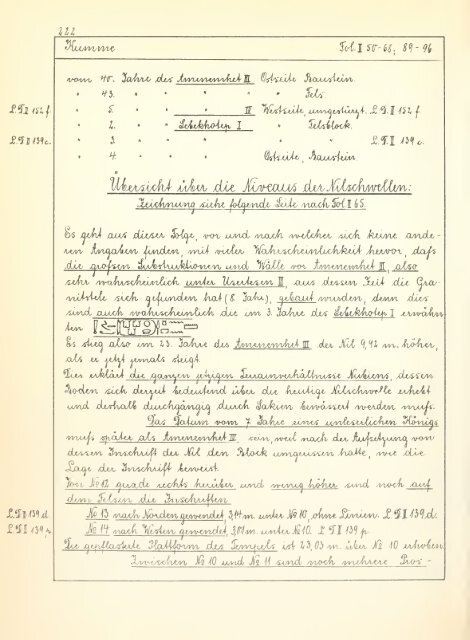 222
Kumme Fol. II 50-68; 89-96
vom 40. Jahre des Amenemhet III Ostseite Baustein.
" 43. " " " " " Fels
L. D. II 152 f " 5. " " " IV Westseite, umgestürzt. L. D. II 152 f
" 2. " " Sebekhotep I " Felsblock.
L. D. II 139 c. " 3. " " " " " L. D. II 139 c.
" 4. " " " Ostseite, Baustein
Übersicht über die Niveaus der Nilschwellen:
Zeichnung siehe folgende Seite nach Fol II 65.
Es geht aus dieser Folge, vor und nach welcher sich keine ande-
ren Angaben finden, mit vieler Wahrscheinlichkeit hervor, daß
die großen Substruktionen und Wälle vor Amenemhet III, also
sehr wahrscheinlich unter Usertesen III, aus dessen Zeit die Gra-
nitstele sich gefunden hat (8 Jahr), gebaut wurden, denn dies
sind auch wahrscheinlich die im 3. Jahre des Sebekhotep I erwähn-
ten
Es stieg also im 23. Jahre des Amenemhet III der Nil 9,92 m. höher,
als er jetzt jemals steigt.
Dies erklärt die ganzen jetzigen Terrainverhältnisse Nubiens, dessen
Boden sich derzeit bedeutend über die heutige Nilschwelle erhebt
und deshalb durchgängig durch Sakien bewässert werden muß.
Das Datum vom 7 Jahre eines unleserlichen Königs
muß später als Amenemhet III sein, weil nach der Aufsetzung von
dessen Inschrift der Nil den Block umgerissen hatte, wie die
Lage der Inschrift beweist.
Von № 12 grade rechts herüber und wenig höher sind noch auf
dem Felsen die Inschriften
L. D. II 139 d. № 13 nach Norden gewendet, 3,14 m. unter № 10, ohne Linien. L. D. II 139. d.
L. D. II 139 p. № 14 nach Westen gewendet, 3,01 m. unter № 10. L. D. II 139 p.
Die gepflasterte Plattform des Tempels ist 23,03 m. über № 10 erhoben
Zwischen № 10 und № 11 sind noch mehrere Pros-